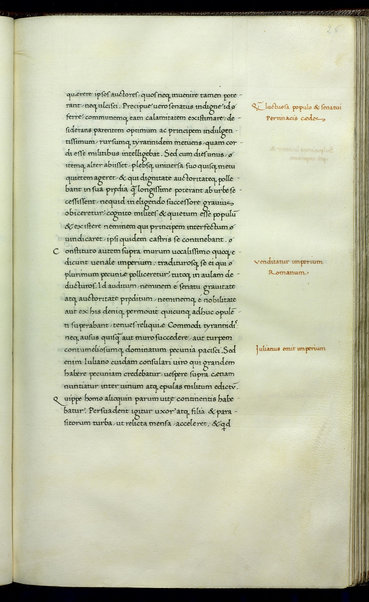 28
quȩrere ipsos auctores: quos neq; inuenire tamen pote
rant: neq; ulcisci. Precipue uero senatus indigne id o
ferre: communemq; eam calamitatem existimare: de
siderans parentem optimum ac principem indulgen
tissimum: rursumq; tyrannidem metuens: quam cor
di esse militibus intelligebat. Sed cum dies unus. o
itemq; alter abisset: plebsq; uniuersa suo quisq; metu
quietem ageret: & qui dignitate auctoritateq; polle
bant in sua prȩdia q̃ longissime poterant ab urbe se
cessissent: nequid in eligendo successore grauius
obiceretur: cognito milites & quietum esse populũ
& existere neminem qui principem interfectum o
uindicaret: ipsi quidem castris se continebant. o
Constituto autem supra murum uocalissimo quoq; e
dicunt uenale imperium: tradituroſq; se ei qui o
plurimum pecuniȩ polliceretur: tutoq; in aulam de
ducturos. Id auditum: neminem e senatu grauitate
atq; auctoritate prȩditum: neminemq; e nobilitate
aut ex his deniq; permouit: quicunq; adhuc opulẽ
ti superabant: tenues reliquiȩ Commodi tyrannidi:
neq; ausus quisq̃ aut muro succedere: aut turpem
contumeliosumq; dominatum pecunia pacisci. Sed
enim Iuliano cuidam consulari uiro qui grandem
habere pecuniam credebatur: uespere supra cȩnam
nuntiatur inter uinum atq; epulas militum edictũ.
Quippe homo alioquin parum uitȩ continentis habe
batur. Persuadent igitur uxor atq; filia & para
sitorum turba: ut relicta mensa acceleret: & q̃d
luctuosa populo & senatui
Pertinacis cȩdes
Venditatur imperium
Romanum.
Iulianus emit imperium